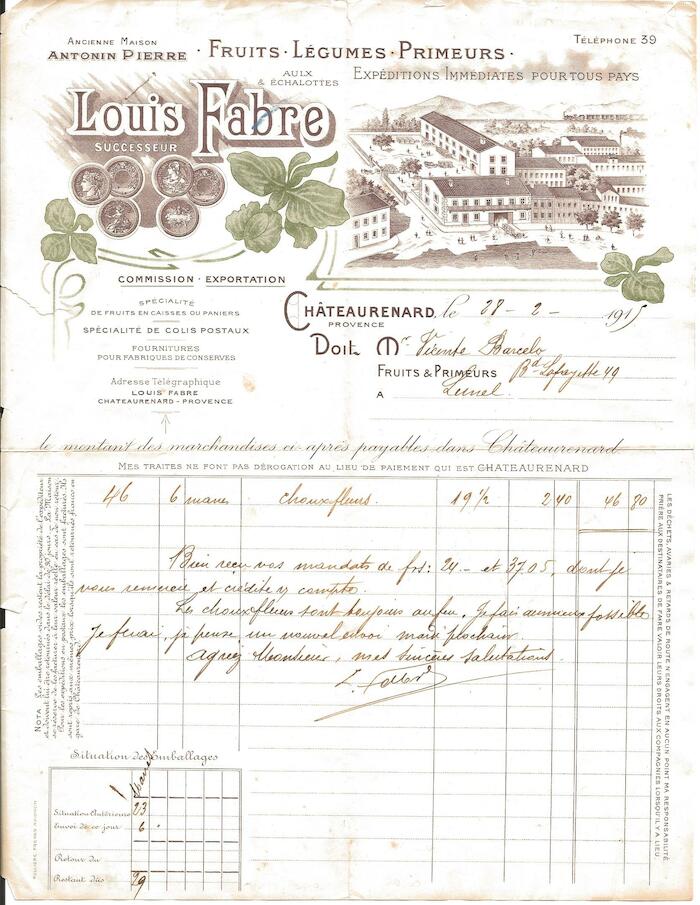 ANCIENNE MAISON
ANTONIN PIERRE
· FRUITS · LÉGUMES · PRIMEURS ·
TÉLÉPHONE 39
AULX
& ÉCHALOTTES
EXPÉDITIONS IMMÉDIATES POUR TOUS PAYS
Louis Fabre
SUCCESSEUR
COMMISSION · EXPORTATION
SPÉCIALITÉ
DE FRUITS EN CAISSES OU PANIERS
SPÉCIALITÉ DE COLIS POSTAUX
FOURNITURES
POUR FABRIQUES DE CONSERVES
Adresse Télégraphique
LOUIS FABRE
CHATEAURENARD - PROVENCE
CHÂTEAURENARD, le 28 - 2 - 1915
PROVENCE
Doit Mr Vicente Barcelo
FRUITS & PRIMEURS Bd Lafayette 49
A Lunel.
le montant des marchandises ci-après payables dans Châteaurenard
MES TRAITES NE FONT PAS DÉROGATION AU LIEU DE PAIEMENT QUI EST CHATEAURENARD
46 6 manes chouxfleurs. 19 1/2 2.40 46 80
Bien reçu vos mandats de frs: 24.- et 37.05, dont je
vous remercie, et crédite v/ compte.
Les chouxfleurs sont toujours au feu. Je fais au mieux possible
Je ferai, je pense un nouvel envoi mardi prochain.
Agréez Monsieur, mes sincères salutations.
NOTA Les emballages vides restent la propriété de l'expéditeur
et doivent lui être retournés dans le délai de 30 jours. La Maison
se réserve de les facturer à leur valeur réelle en cas de non retour.
Pour les expéditions en postaux les emballages sont facturés. Ils
sont repris aux mêmes prix lorsqu'ils sont retournés franco en
gare de Châteaurenard
LES DÉCHETS, AVARIES & RETARDS DE ROUTE N'ENGAGENT EN AUCUN POINT MA RESPONSABILITÉ
PRIÈRE AUX DESTINATAIRES DE FAIRE VALOIR LEURS DROITS AUX COMPAGNIES LORSQU'IL Y A LIEU
Situation des Emballages
Situation Antérieure 23
Envoi de ce jour 6
Retour du
Restant dûs 29